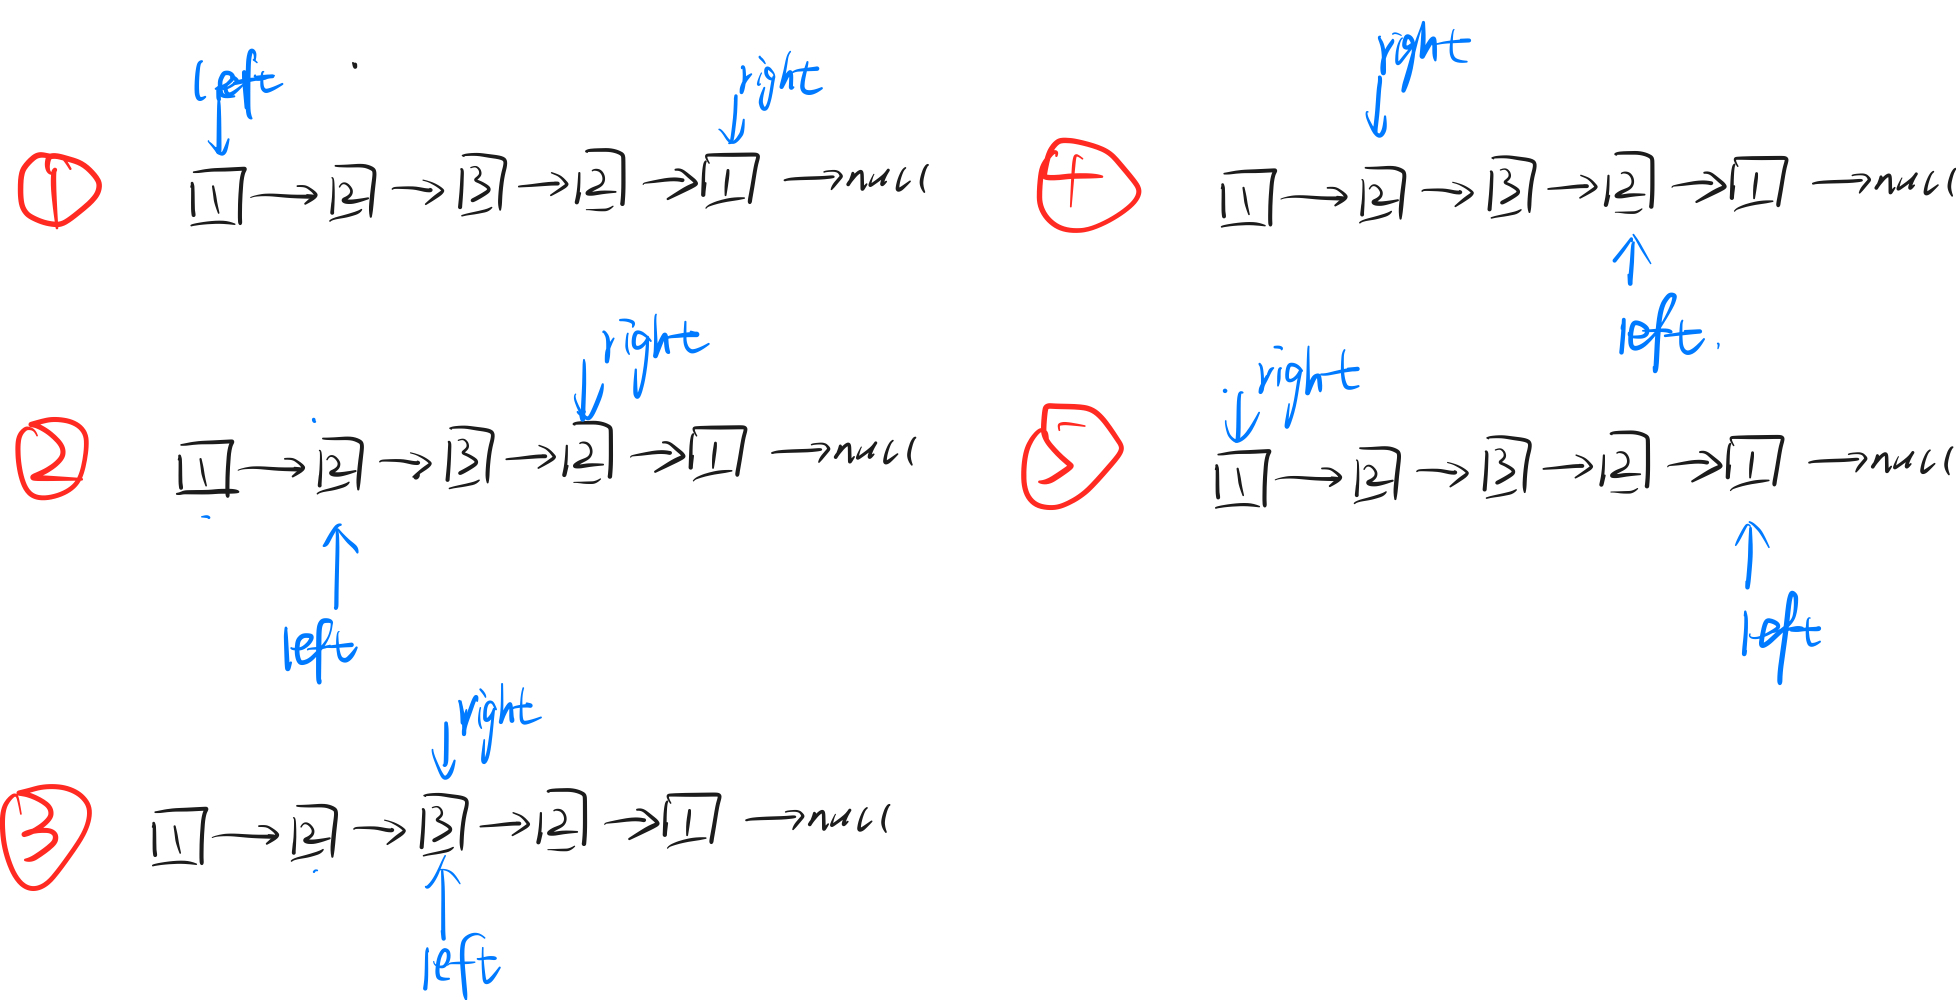 left right
① 1 → 2 → 3 → 2 → 1 → null
right
② 1 → 2 → 3 → 2 → 1 → null
left
right
③ 1 → 2 → 3 → 2 → 1 → null
left
right
④ 1 → 2 → 3 → 2 → 1 → null
left
right
⑤ 1 → 2 → 3 → 2 → 1 → null
left